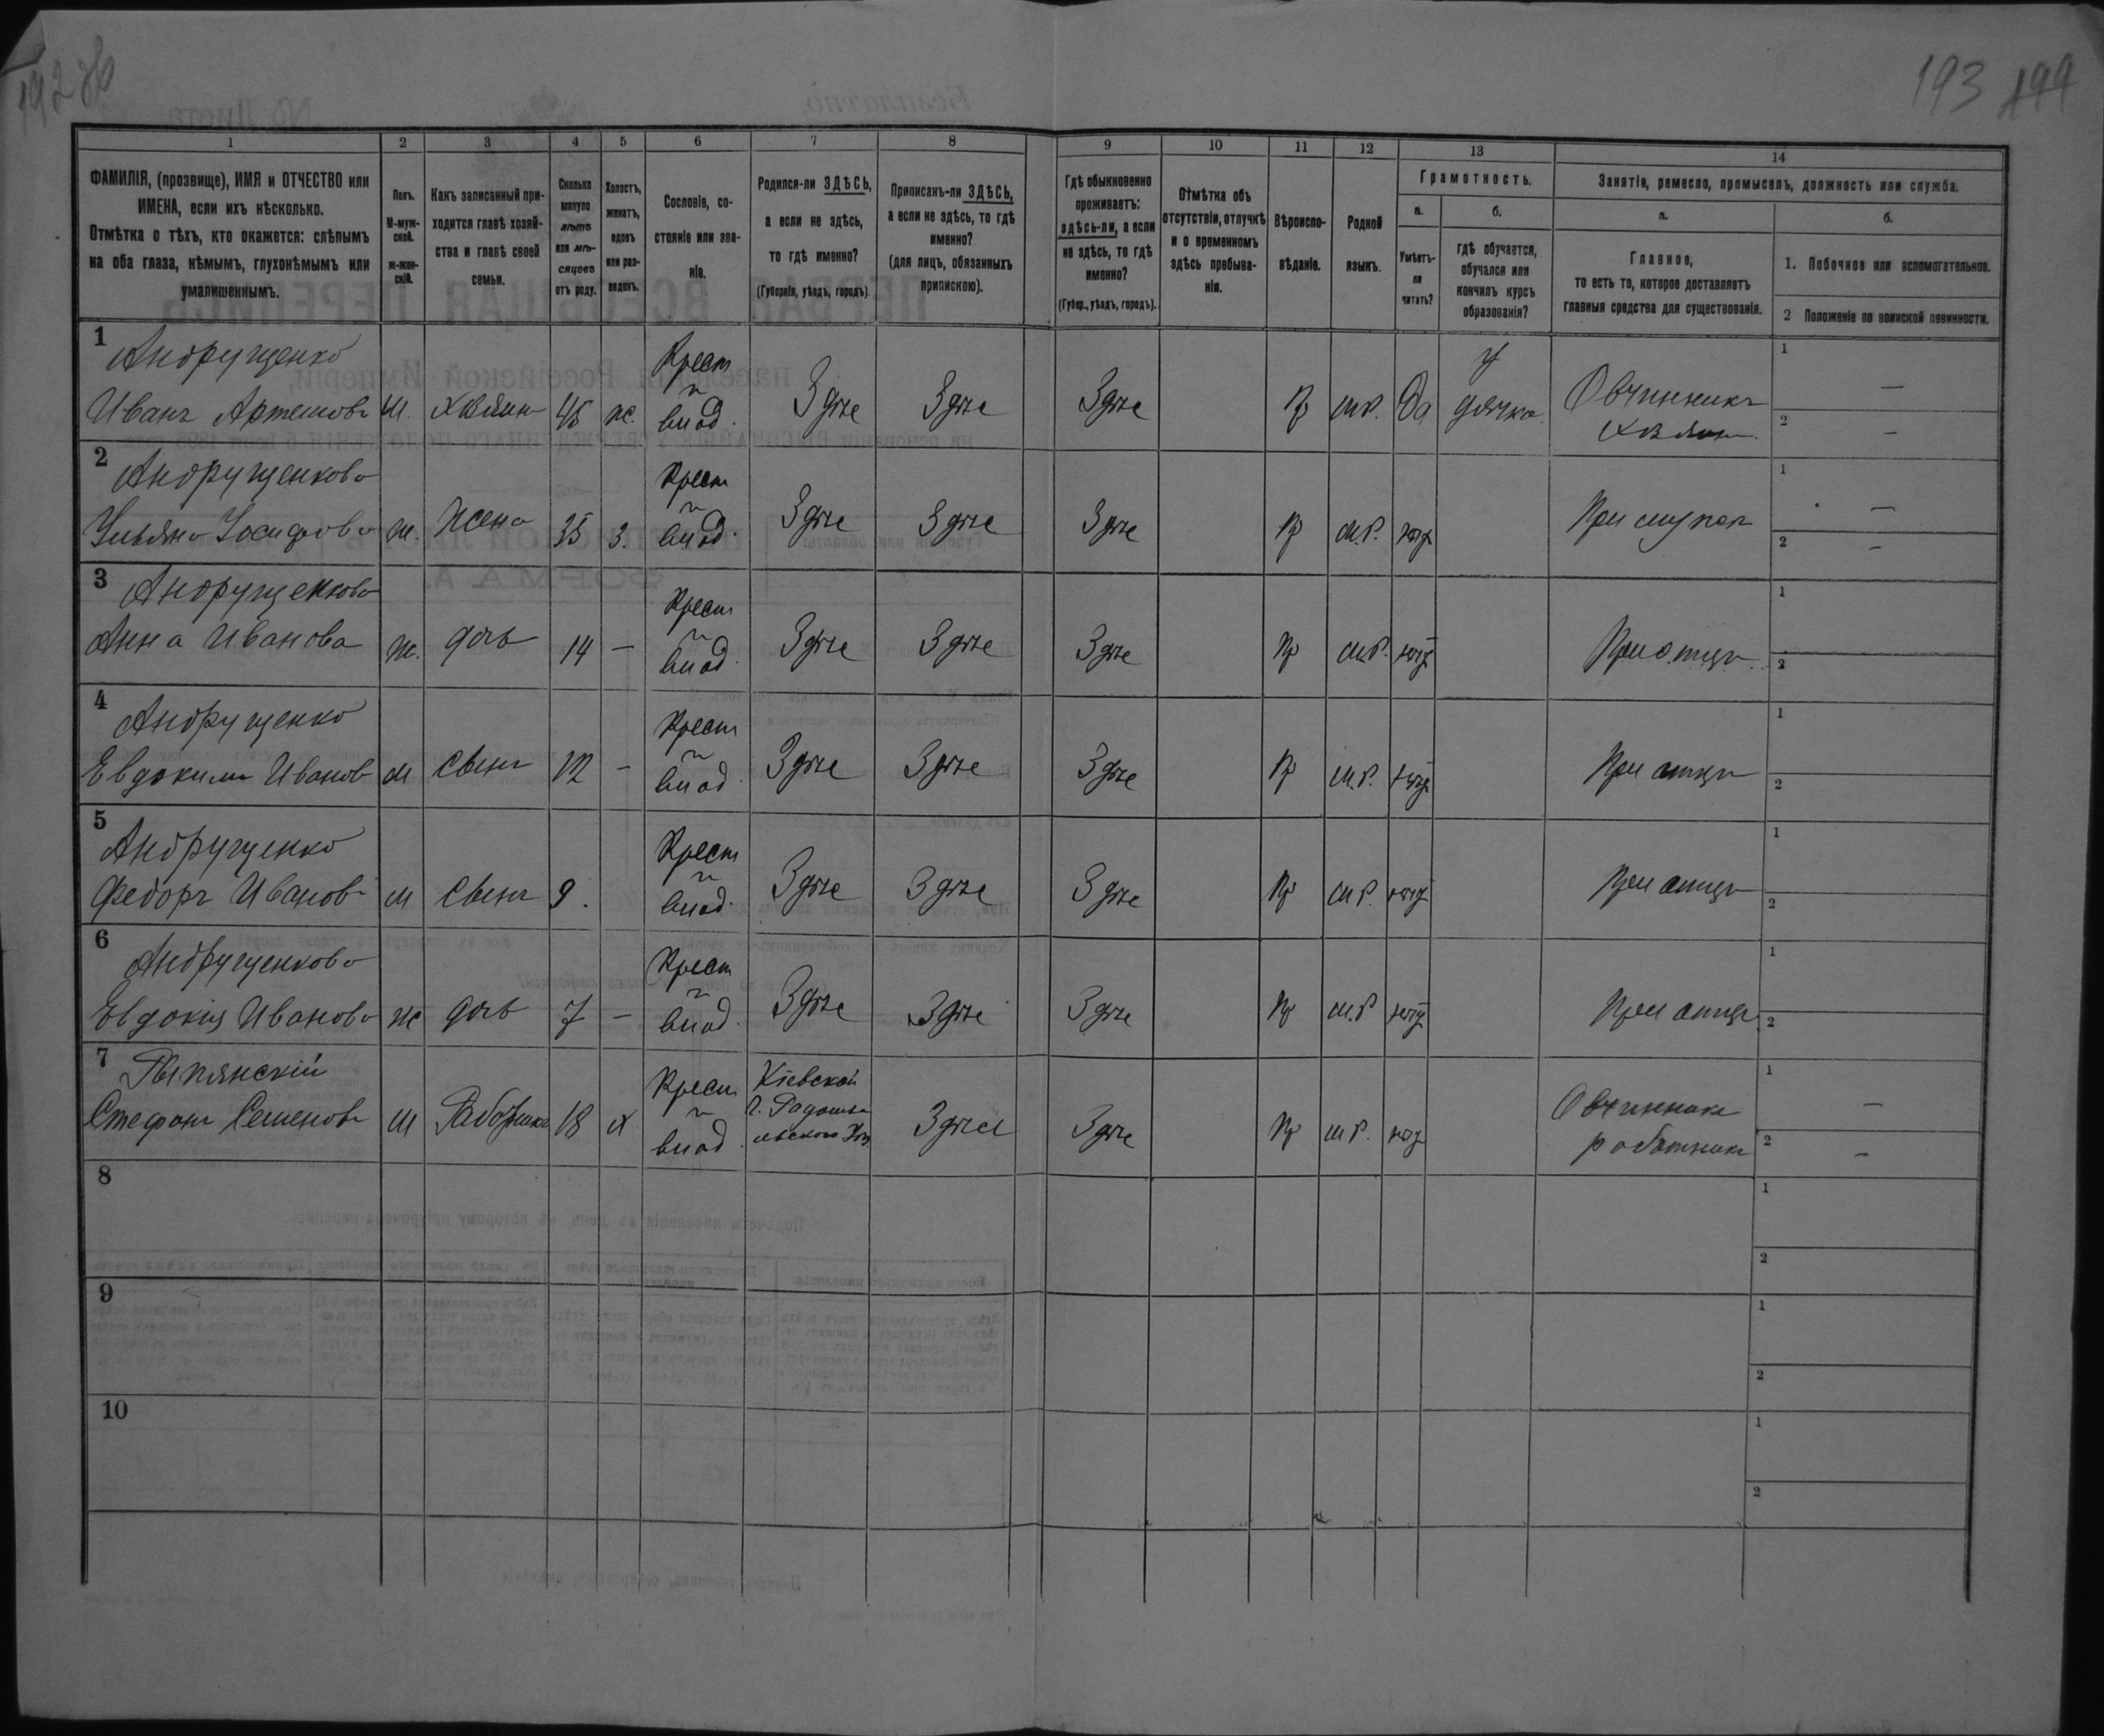 192 об
193 199
1 2 3 4 5 6 7 8 9 10 11 12 13 14
ФАМИЛІЯ, (прозвище), ИМЯ и ОТЧЕСТВО или ИМЕНА, если ихъ нѣсколько.
Отмѣтка о тѣхъ, кто окажется: слѣпымъ на оба глаза, нѣмымъ, глухонѣмымъ или умалишеннымъ.
Полъ.
М-мужской.
Ж-женскій.
Какъ записанный приходится главѣ хозяйства и главѣ своей семьи.
Сколько минуло лѣтъ или мѣсяцевъ отъ роду.
Холостъ, женатъ, вдовъ или разведенъ.
Сословіе, состояніе или званіе.
Родился-ли ЗДѢСЬ, а если не здѣсь, то гдѣ именно?
(Губернія, уѣздъ, городъ).
Приписанъ-ли ЗДѢСЬ, а если не здѣсь, то гдѣ именно?
(для лицъ, обязанныхъ припискою).
Гдѣ обыкновенно проживаетъ: здѣсь-ли, а если не здѣсь, то гдѣ именно?
(Губер., уѣздъ, городъ).
Отмѣтка объ отсутствіи, отлучкѣ и о временномъ здѣсь пребываніи.
Вѣроисповѣданіе.
Родной языкъ.
Грамотность.
а.
Умѣетъ-ли читать?
б.
гдѣ обучается, обучался или кончилъ курсъ образованія?
Занятіе, ремесло, промыселъ, должность или служба.
а.
Главное,
то есть то, которое доставляетъ главныя средства для существованія.
б.
1. Побочное или вспомогательное.
2 Положеніе по воинской повинности.
1 Андрущенко
Иванъ Артемовъ М. хозяинъ 45 ж. Крест из влад. Здѣсь Здѣсь Здѣсь Пр м.р. Да у дячка Овчинникъ хозяинъ 1 — 2 —
2 Андрущенкова
Ульяна Іосифова ж. жена 35 з. Крест из влад. Здѣсь Здѣсь Здѣсь Пр м.р. нѣтъ При мужѣ 1 — 2 —
3 Андрущенкова
Анна Иванова ж. дочь 14 — Крест из влад. Здѣсь Здѣсь Здѣсь Пр м.р. нѣтъ При отцѣ 1 2
4 Андрущенко
Евдокимъ Ивановъ м сынъ 12 — Крест из влад. Здѣсь Здѣсь Здѣсь Пр м.р. нѣтъ При отцѣ 1 2
5 Андрущенко
Федоръ Ивановъ м сынъ 9. Крест из влад. Здѣсь Здѣсь Здѣсь Пр м.р. нѣтъ При отцѣ 1 2
6 Андрущенкова
Евдокія Иванова ж дочь 7 — Крест из влад. Здѣсь Здѣсь Здѣсь Пр м.р нѣтъ При отцѣ 1 2
7
Стефанъ Семеновъ м Работникъ 18 х Крест из влад. Кіевской г. Радомысльского Уѣз Здѣсь Здѣсь Пр м.р. нѣтъ Овчинникъ работникъ 1 — 2 —
8 1 2
9 1 2
10 1 2